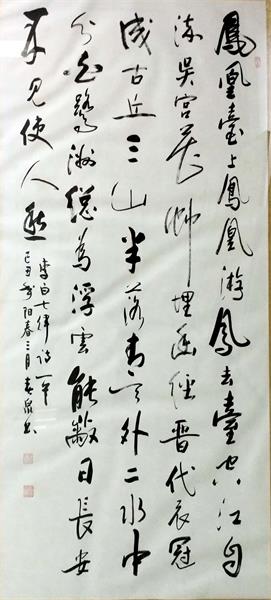 鳳凰臺上鳳凰游鳳去臺空江自
流吳宮花草埋幽徑晉代衣冠
成古丘三山半落青天外二水中
分白鷺洲總為浮雲能蔽日長安
不見使人愁
李白七律詩一首
己丑岁阳春三月